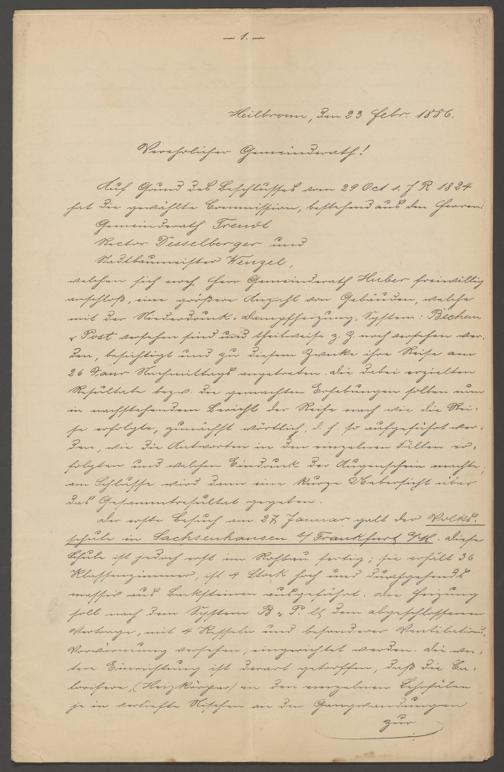 — 1. —
Heilbronn, den 23 Febr. 1886.
Verehrlicher Gemeinderath!
Auf Grund des Beschlusses vom 29 Oct v. J. R 1824
hat die gewählte Commission, bestehend aus den Herren
Gemeinderath Treudt
Rector Desselberger und
Stadtbaumeister Wenzel,
welchen sich noch Herr Gemeinderath Huber freiwillig
anschloß, eine größere Anzahl von Gebäuden, welche
mit der Niederdruck-Dampfheizung, System: Bechem
& Post versehen sind und theilweise z. Z. noch versehen wer-
den, besichtigt und zu diesem Zwecke ihre Reise am
26 Januar Nachmittags angetreten. Die dabei erzielten
Resultate bezw. die gemachten Erhebungen sollen nun
in nachstehendem Bericht der Reihe nach wie die Rei-
se erfolgte, zunächst wörtlich, d. h. so aufgeführt wer-
den, wie die Antworten in den einzelnen Fällen er-
folgten und welchen Eindruck der Augenschein machte;
am Schlusse wird dann eine kurze Uebersicht über
das Gesammtresultat gegeben.
Der erste Besuch am 27 Januar galt der Volks-
schule in Sachsenhausen b/ Frankfurt a/M. Diese
Schule ist jedoch erst im Rohbau fertig; sie erhält 36
Klassenzimmer, ist 4 Stock hoch und durchgehends
massiv aus Backsteinen ausgeführt. Die Heizung
soll nach dem System B & P. lt dem abgeschlossenen
Vertrage, mit 4 Kesseln und besonderer Ventilations-
Vorwärmung versehen, eingerichtet werden. Die wei-
tere Einrichtung ist derart getroffen, daß die Ca-
lorifere, (Heizkörper) in den einzelnen Lehrsälen
je in vertiefte Nischen an den Gangwandungen
zur